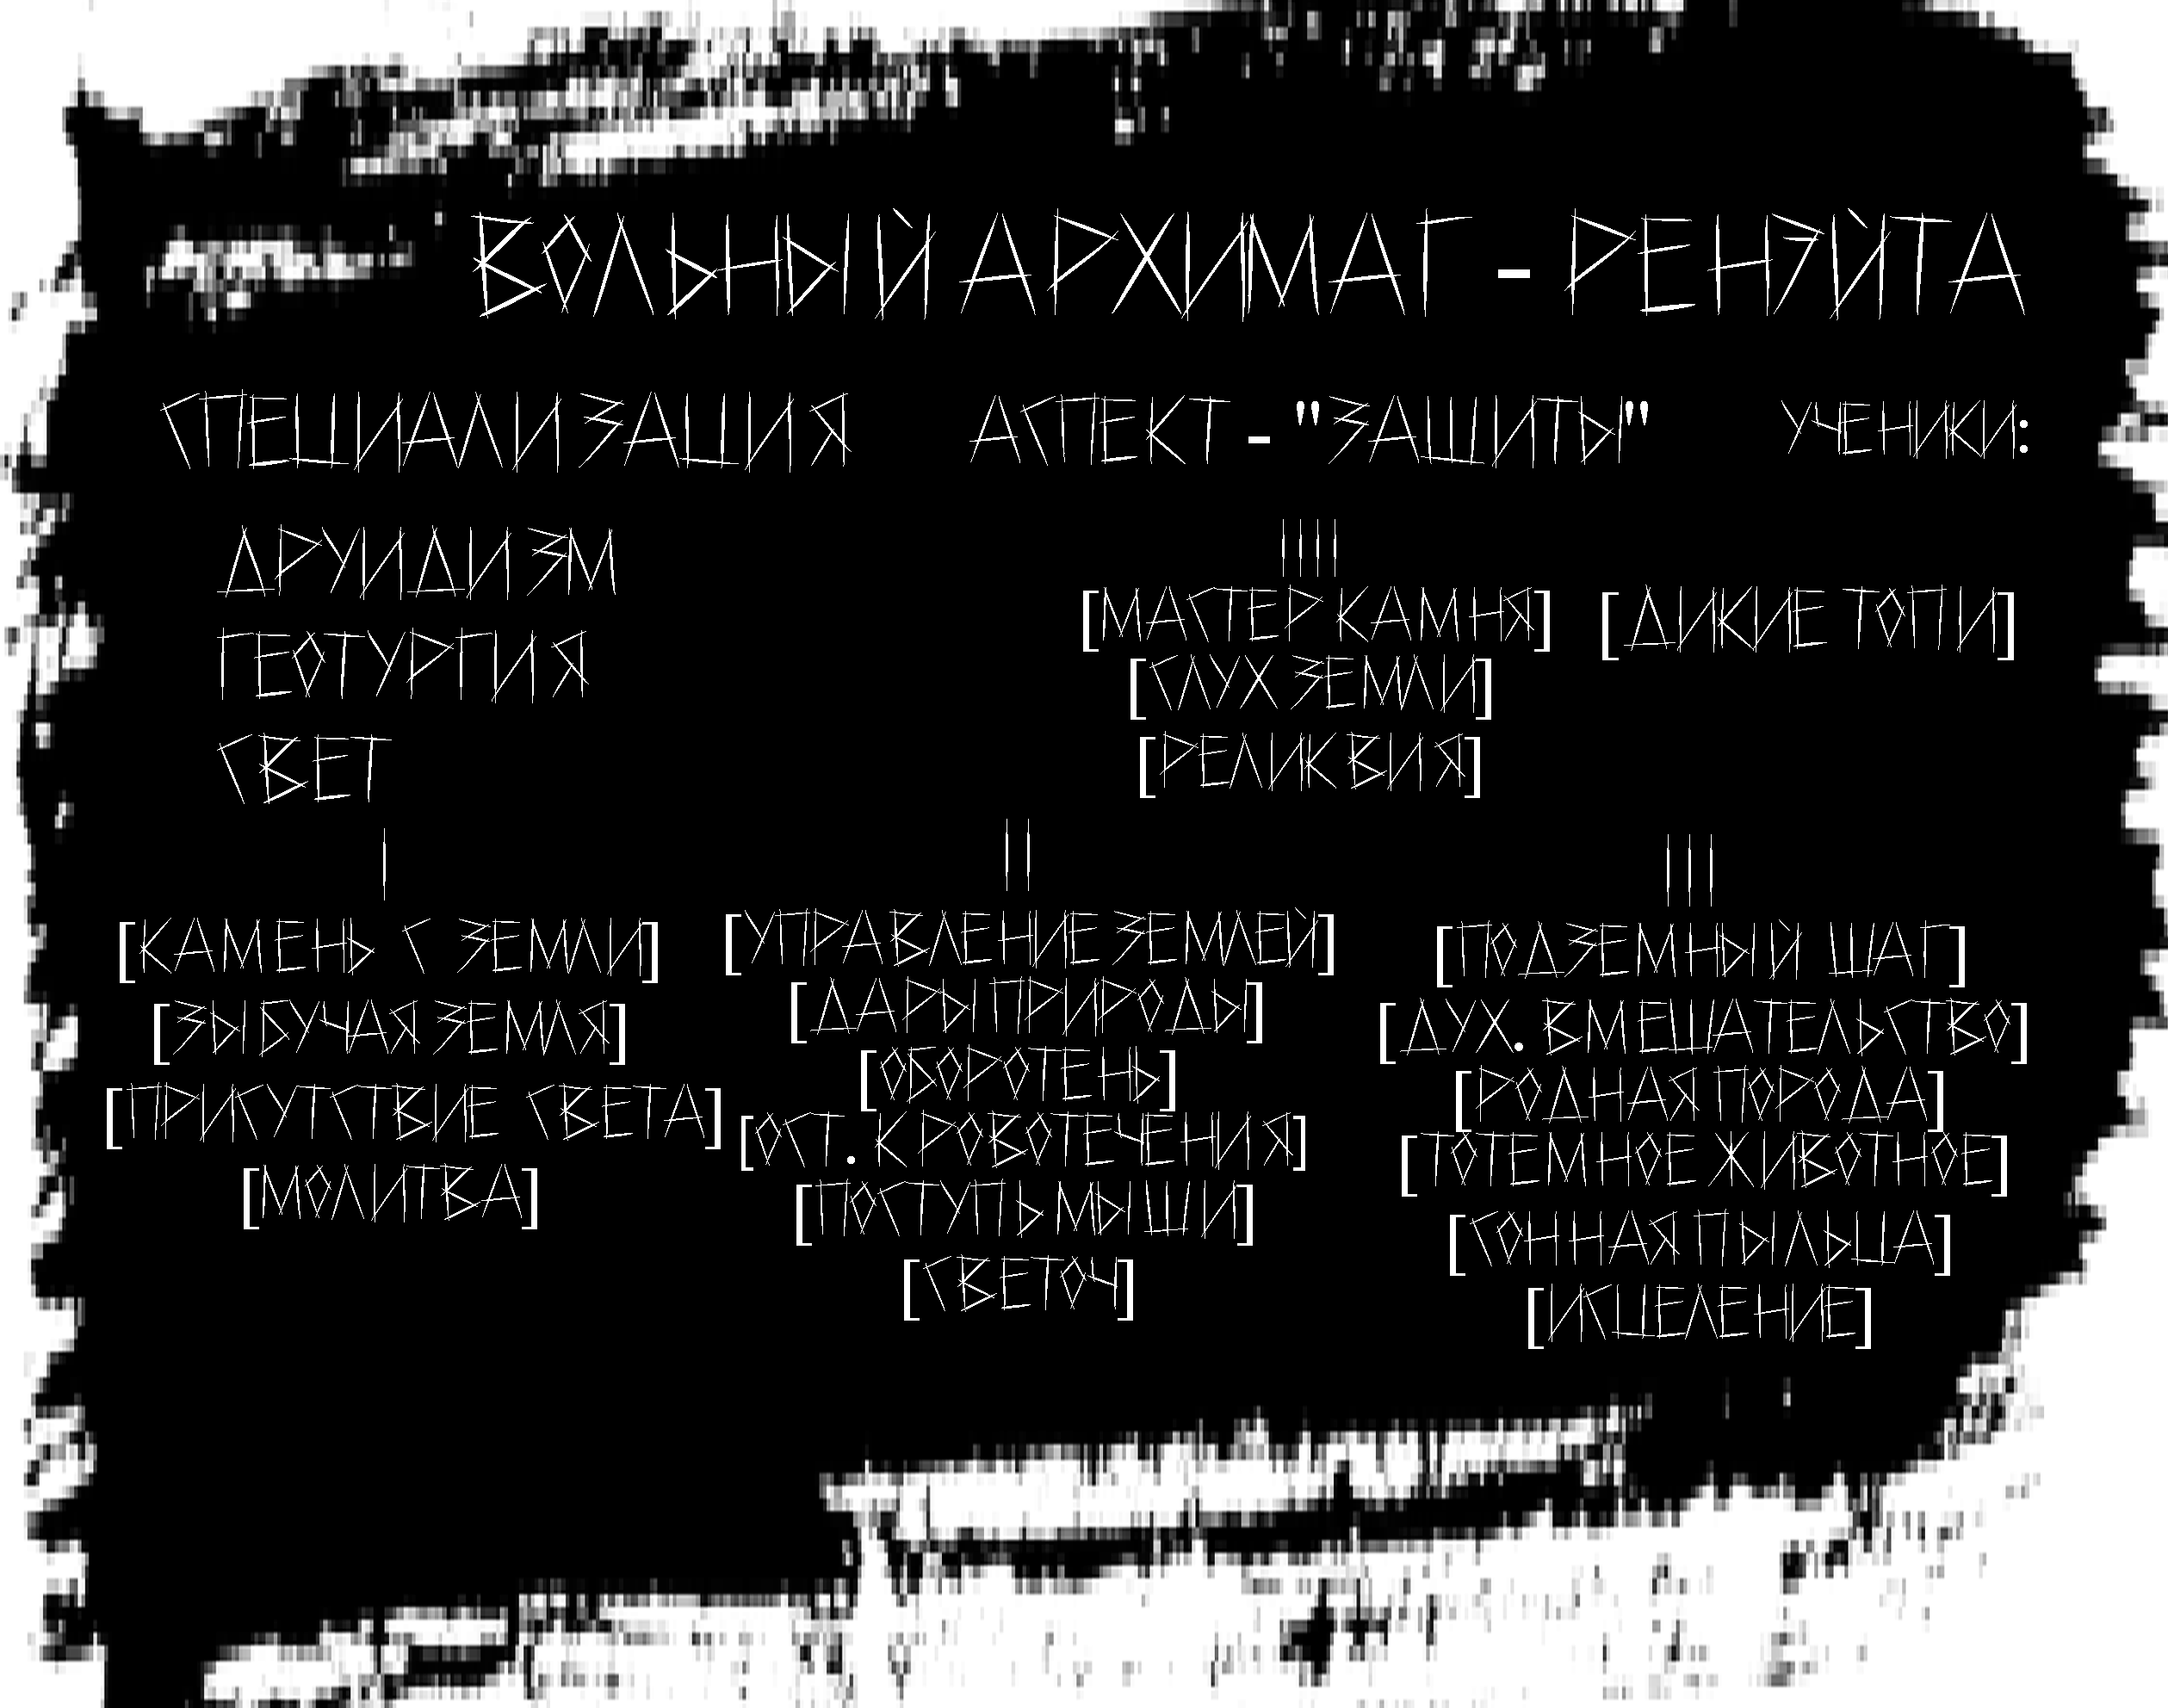 ВОЛЬНЫЙ АРХИМАГ - РЕНЭЙТА
СПЕЦИАЛИЗАЦИЯ
ДРУИДИЗМ
ГЕОТУРГИЯ
СВЕТ
АСПЕКТ - "ЗАЩИТЫ"
УЧЕНИКИ:
||||
[МАСТЕР КАМНЯ]
[СЛУХ ЗЕМЛИ]
[РЕЛИКВИЯ]
[ДИКИЕ ТОПИ]
|
[КАМЕНЬ С ЗЕМЛИ]
[ЗЫБУЧАЯ ЗЕМЛЯ]
[ПРИСУТСТВИЕ СВЕТА]
[МОЛИТВА]
||
[УПРАВЛЕНИЕ ЗЕМЛЕЙ]
[ДАРЫ ПРИРОДЫ]
[ОБОРОТЕНЬ]
[ОСТ. КРОВОТЕЧЕНИЯ]
[ПОСТУПЬ МЫШИ]
[СВЕТОЧ]
|||
[ПОДЗЕМНЫЙ ШАГ]
[ДУХ. ВМЕШАТЕЛЬСТВО]
[РОДНАЯ ПОРОДА]
[ТОТЕМНОЕ ЖИВОТНОЕ]
[СОННАЯ ПЫЛЬЦА]
[ИСЦЕЛЕНИЕ]